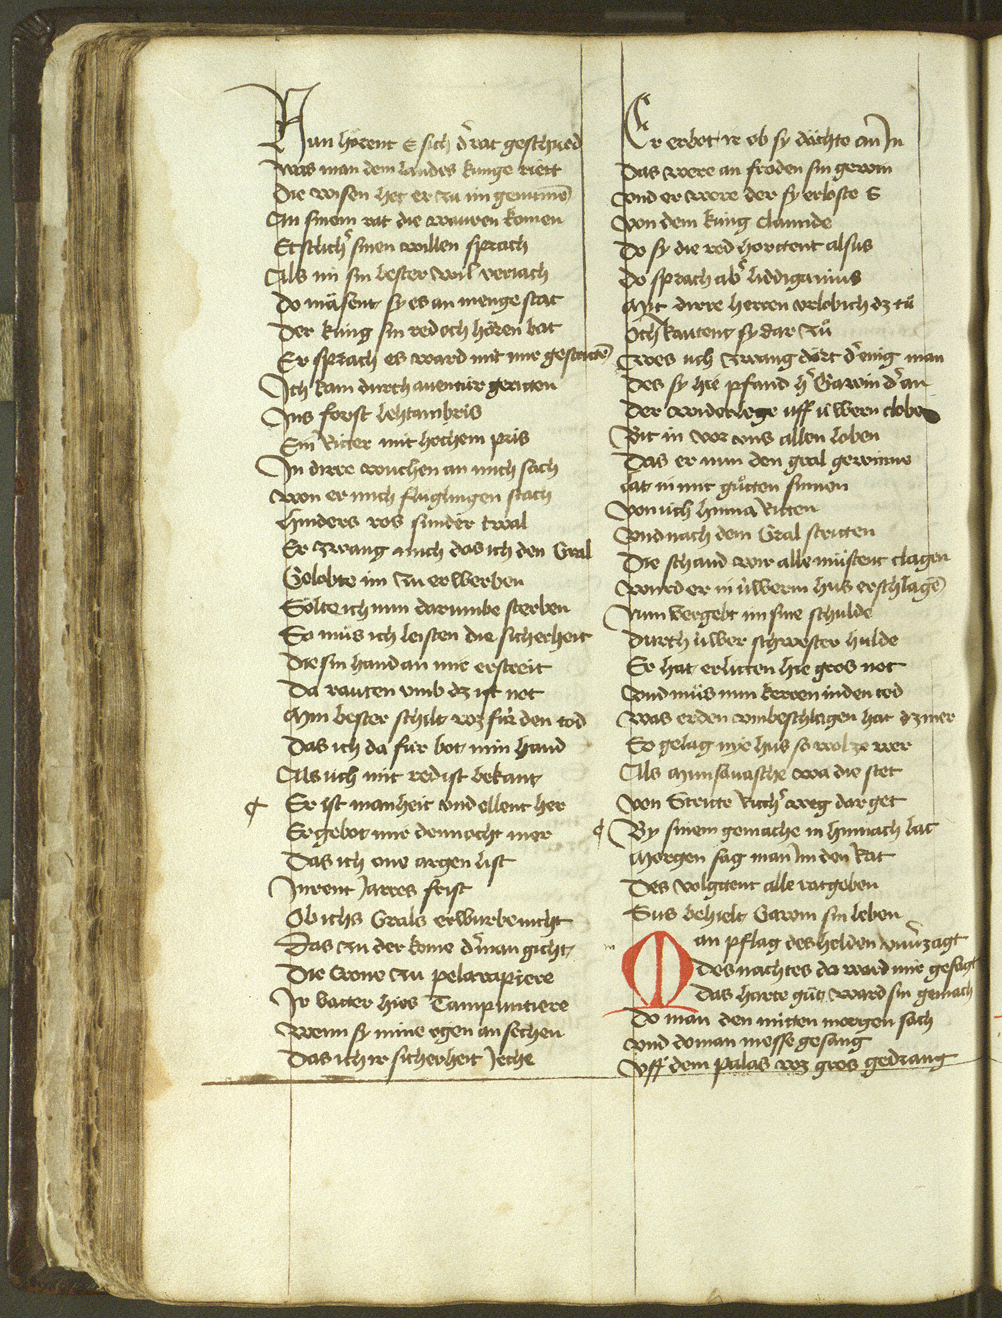 Nun hörent E sich dˢ rat geschied
was man dem landes kunge riett
Die wisen het er zu im genumē
An sinem rat die wauren komen
Etslichˢ sinen willen sprach
Als im sin bester wil veriach
do mäsent sy es an menge stat
Der kung sin red och hören bat
Er sprach es ward mit mir gestrittē
Ich kam durch auentür geritten
Ins forist lehtambris
Ein Ritter mit hochem pris
In dirre wuchen an mich sach
won er mich fluglingen stach
hinders ros sunder twal
Er zwang mich das ich den Gral
Gelobte im zu erwerben
Sölte ich nun darumbe sterben
So müs ich leisten die sicherheit
Die sin hand an mir erstreit
Da rauten vmb dz ist not
Min bester schilt wz für den tod
Das ich da für bot min hand
Als üch mit red ist bekant
Er ist manheit vnd ellent her
Er gebot mir dennocht mer
Das ich one argen list
In rent Jarres frist
Ob ichs Grals erwurbe nicht
Das zu der kome dˢ man gicht
Die Crone zu pelrapiere
Ir vatter hies Tampuntiere
wenn sy mine ogen an sechen
Das ich ir sicherheit Jeche
Er erbot ir ob sy dächte an In
Das were an fröden sin gewin
vnd er were der sy erloste E
von dem kung clamide
Do sy die red hortent alsus
do sprach abˢ liddigamus
Mit dirre herren vrlob ich dz tü
Och rautent sy dar zů
Zwes üch zwang dört dˢ einig man
Des sy hie pfand hˢ Gawin dˢ an
Der widerlege uff üwern cloben
Bit in vor vns allen loben
Das er nun den gral gewinne
Lat in mit gůtten sinnen
von üch hinna Ritten
vnd nach dem Gral stritten
Die schand wir alle müstent clagen
wurd er in üwerm hus erschlagē
Nun vergebt im sine schulde
durch üwer schwester hulde
Er hat erlitten hie gros not
vnd müs nun kerren in den tod
was erden vmbeschlagen hat dz mer
So gelag nye hus so wol ze wer
Als Munsauasche wa die stet
von Stritte Ruchˢ weg dar get
By sinem gemache in hinnach lat
Morgen sag man Im den Rat
Des volgttent alle ratgeben
Sus behielt Gawin sin leben
Man pflag des helden vnuˢzagt
Des nachtes da ward mir gesagt
Das harte gůt ward sin gemach
Do man den mitten morgen sach
vnd do man messe gesang
Vff dem palas wz gros gedrang